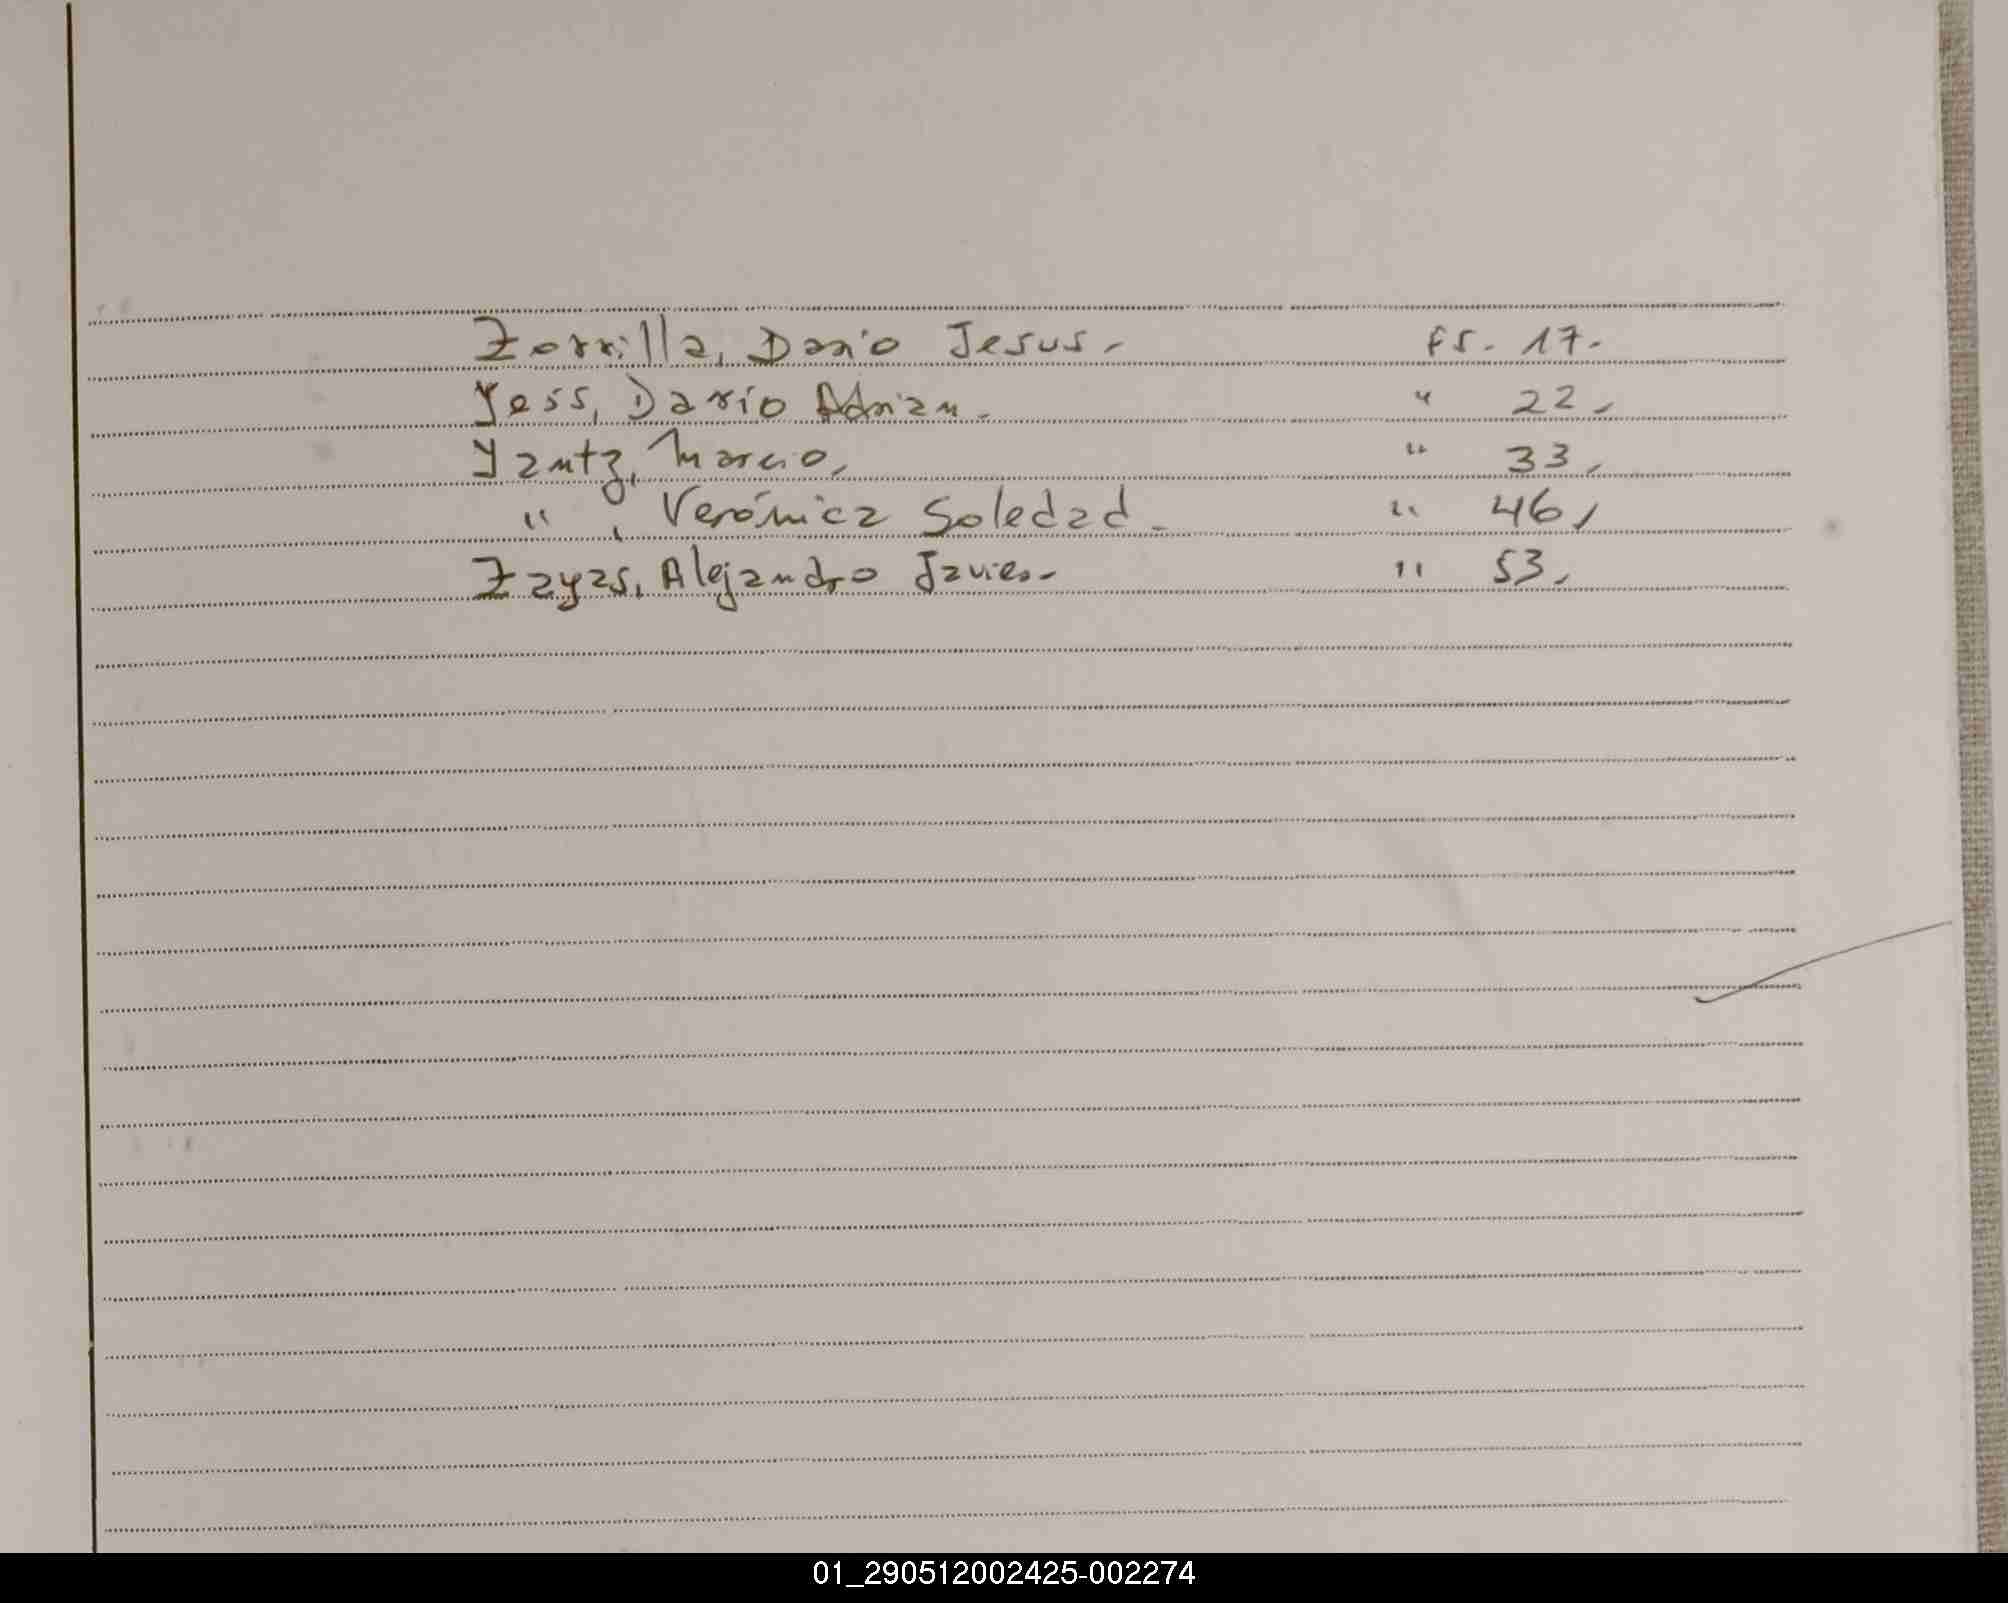 Zorrilla, Dario Jesus. fs. 17.
Yess, Dario Adrian. " 22.
Yantz, Marcio. " 33.
" , Verónica Soledad. " 46,
Zayas, Alejandro Javier. " 53.
01_290512002425-002274